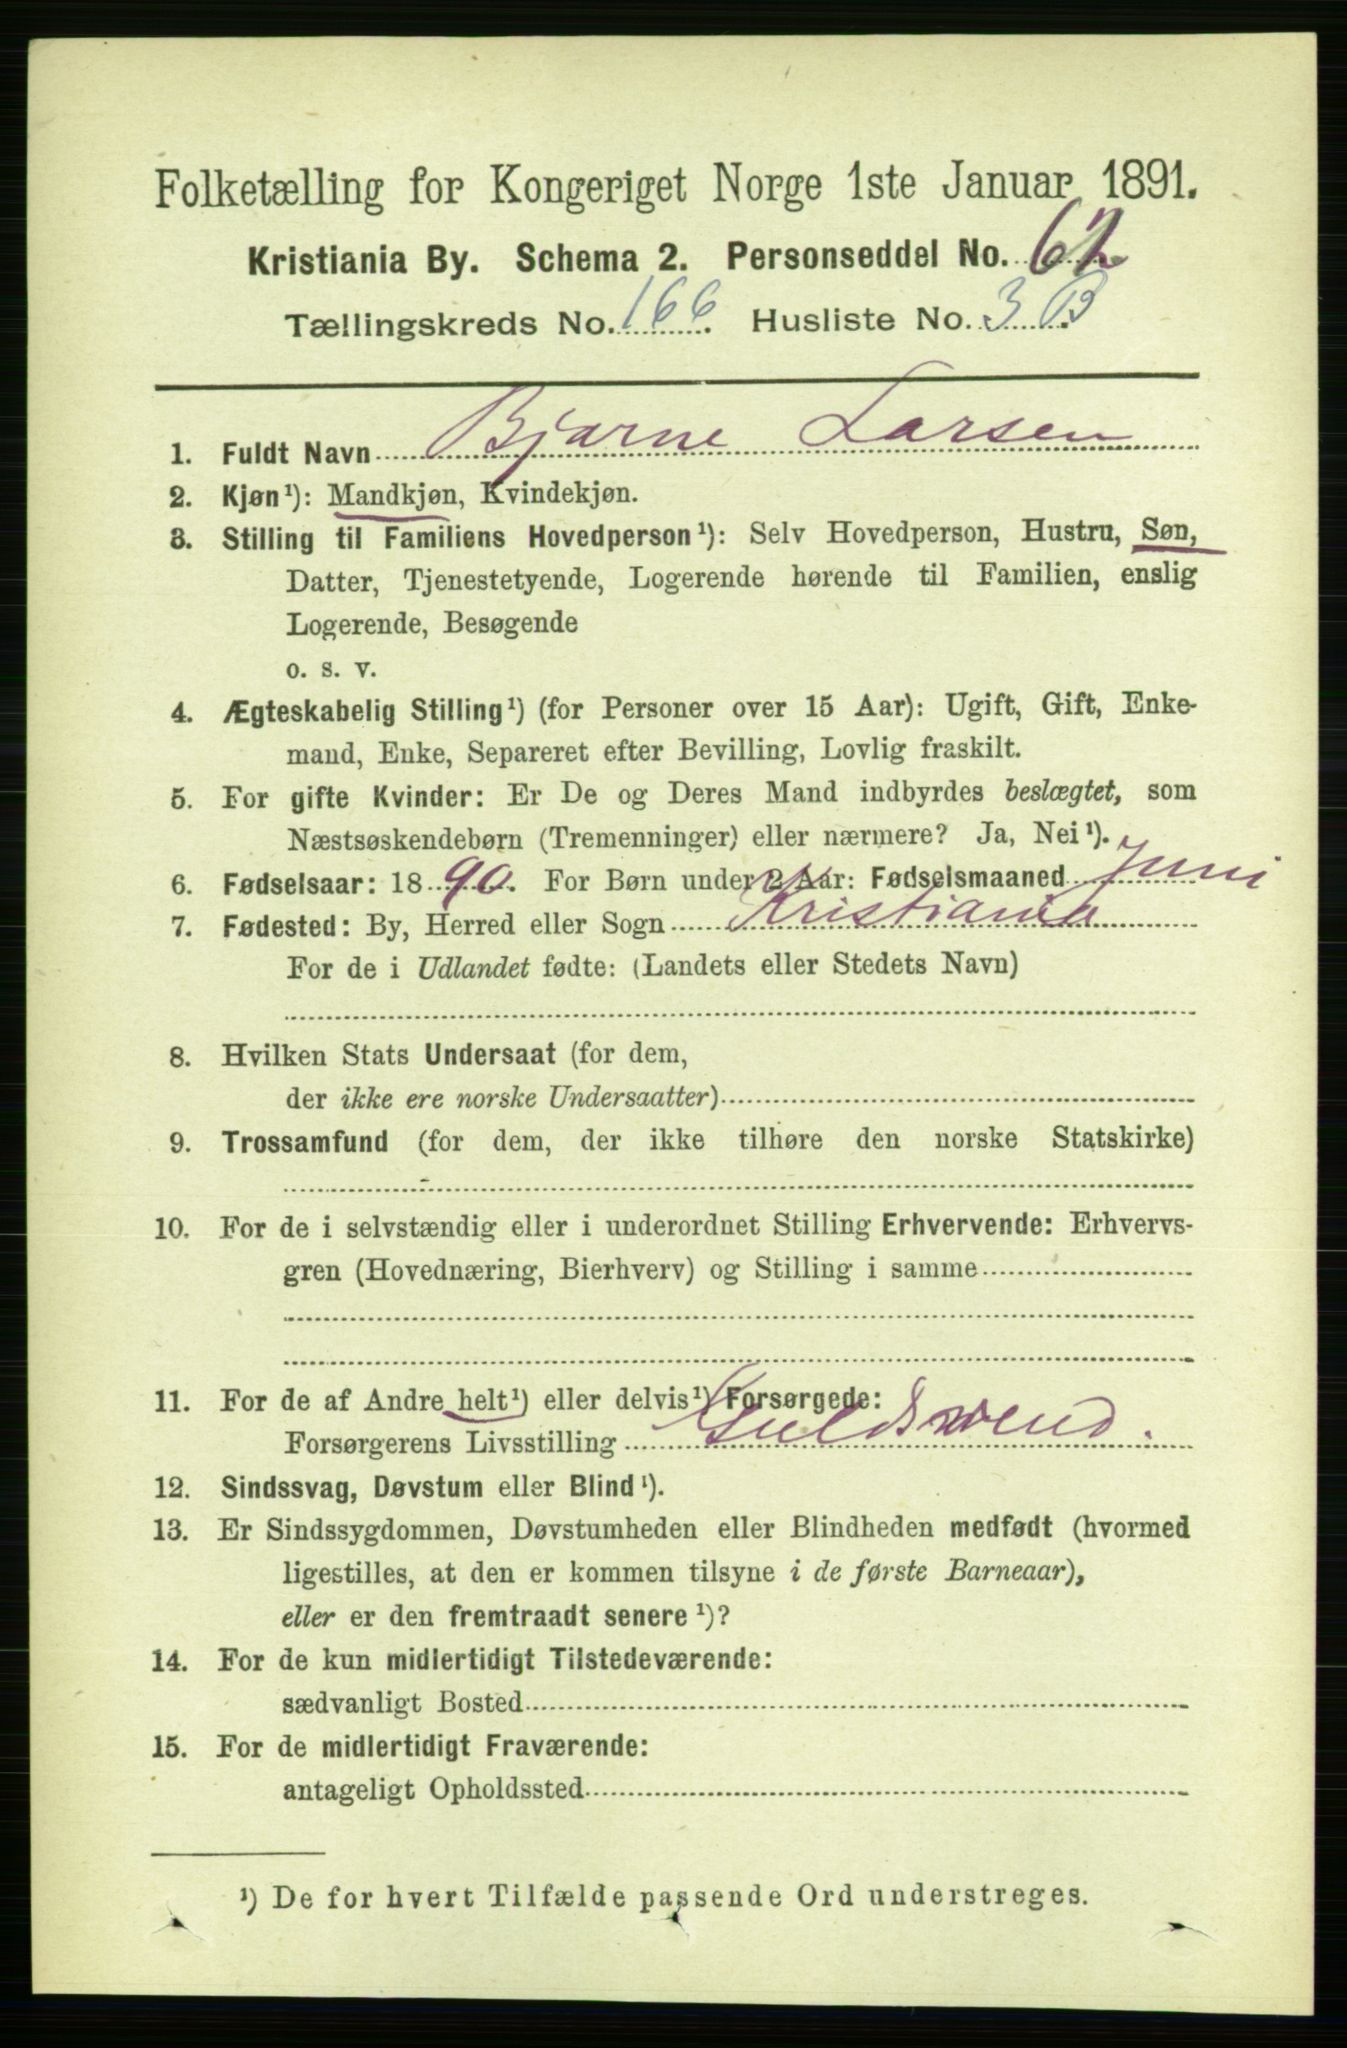 Folketælling for Kongeriget Norge 1ste Januar 1891.
Kristiania By. Schema 2. Personseddel No. 62
Tællingskreds No. 166. Husliste No. 3 B.
1. Fuldt Navn Bjarne Larsen
2. Kjøn¹): Mandkjøn, Kvindekjøn.
3. Stilling til Familiens Hovedperson¹): Selv Hovedperson, Hustru, Søn,
Datter, Tjenestetyende, Logerende hørende til Familien, enslig
Logerende, Besøgende
o. s. v.
4. Ægteskabelig Stilling¹) (for Personer over 15 Aar): Ugift, Gift, Enke-
mand, Enke, Separeret efter Bevilling, Lovlig fraskilt.
5. For gifte Kvinder: Er De og Deres Mand indbyrdes beslægtet, som
Næstsøskendebørn (Tremenninger) eller nærmere? Ja, Nei¹).
6. Fødselsaar: 1890. For Børn under 2 Aar: Fødselsmaaned Juni
7. Fødested: By, Herred eller Sogn Kristiania
For de i Udlandet fødte: (Landets eller Stedets Navn)
8. Hvilken Stats Undersaat (for dem,
der ikke ere norske Undersaatter)
9. Trossamfund (for dem, der ikke tilhøre den norske Statskirke)
10. For de i selvstændig eller i underordnet Stilling Erhvervende: Erhvervs-
gren (Hovednæring, Bierhverv) og Stilling i samme
11. For de af Andre helt¹) eller delvis¹) Forsørgede:
Forsørgerens Livsstilling Guldsvend.
12. Sindssvag, Døvstum eller Blind¹).
13. Er Sindssygdommen, Døvstumheden eller Blindheden medfødt (hvormed
ligestilles, at den er kommen tilsyne i de første Barneaar),
eller er den fremtraadt senere¹)?
14. For de kun midlertidigt Tilstedeværende:
sædvanligt Bosted
15. For de midlertidigt Fraværende:
antageligt Opholdssted
¹) De for hvert Tilfælde passende Ord understreges.